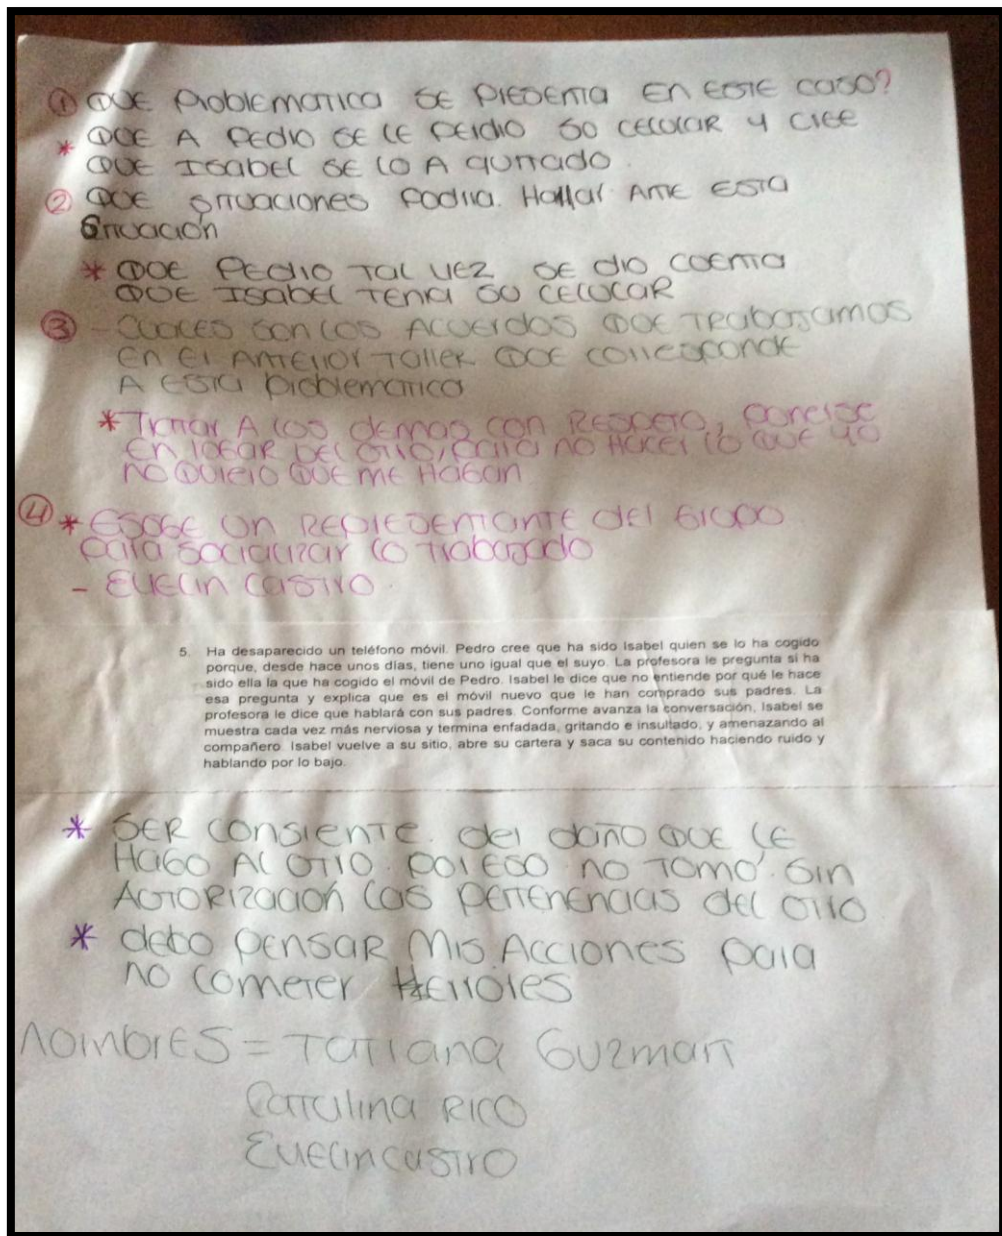 ① QUE Problematica SE presenta En este caso?
* QUE A Pedro SE LE Perdio SU celular y cree
QUE Isabel SE LO A quitado.
② QUE situaciones Podria. Hallar Ante Esta
Situación
* QUE Pedro Tal vez SE dio cuenta
QUE Isabel Tenia SU celucar
③ - Cuales son los Acuerdos QUE Trabajamos
En El Anterior Taller QUE corresponde
A Esta problematica
* Tratar A los demas con Respeto, ponerse
En lugar del otro, para no Hacer lo QUE yo
no Quiero QUE me Hagan
④ * Escoge Un Representante del Grupo
para socializar lo Trabajado
- Evelin Castro.
5. Ha desaparecido un teléfono móvil. Pedro cree que ha sido Isabel quien se lo ha cogido
porque, desde hace unos días, tiene uno igual que el suyo. La profesora le pregunta si ha
sido ella la que ha cogido el móvil de Pedro. Isabel le dice que no entiende por qué le hace
esa pregunta y explica que es el móvil nuevo que le han comprado sus padres. La
profesora le dice que hablará con sus padres. Conforme avanza la conversación, Isabel se
muestra cada vez más nerviosa y termina enfadada, gritando e insultado, y amenazando al
compañero. Isabel vuelve a su sitio, abre su cartera y saca su contenido haciendo ruido y
hablando por lo bajo.
* SER consiente. del daño QUE LE
HAGO Al otro. por eso no Tomo sin
AUTORIZACIÓN las pertenencias del otro.
* debo pensar Mis Acciones para
no cometer Herrores
Nombres = Tatiana Guzman
Catalina Rico
Evelin castro